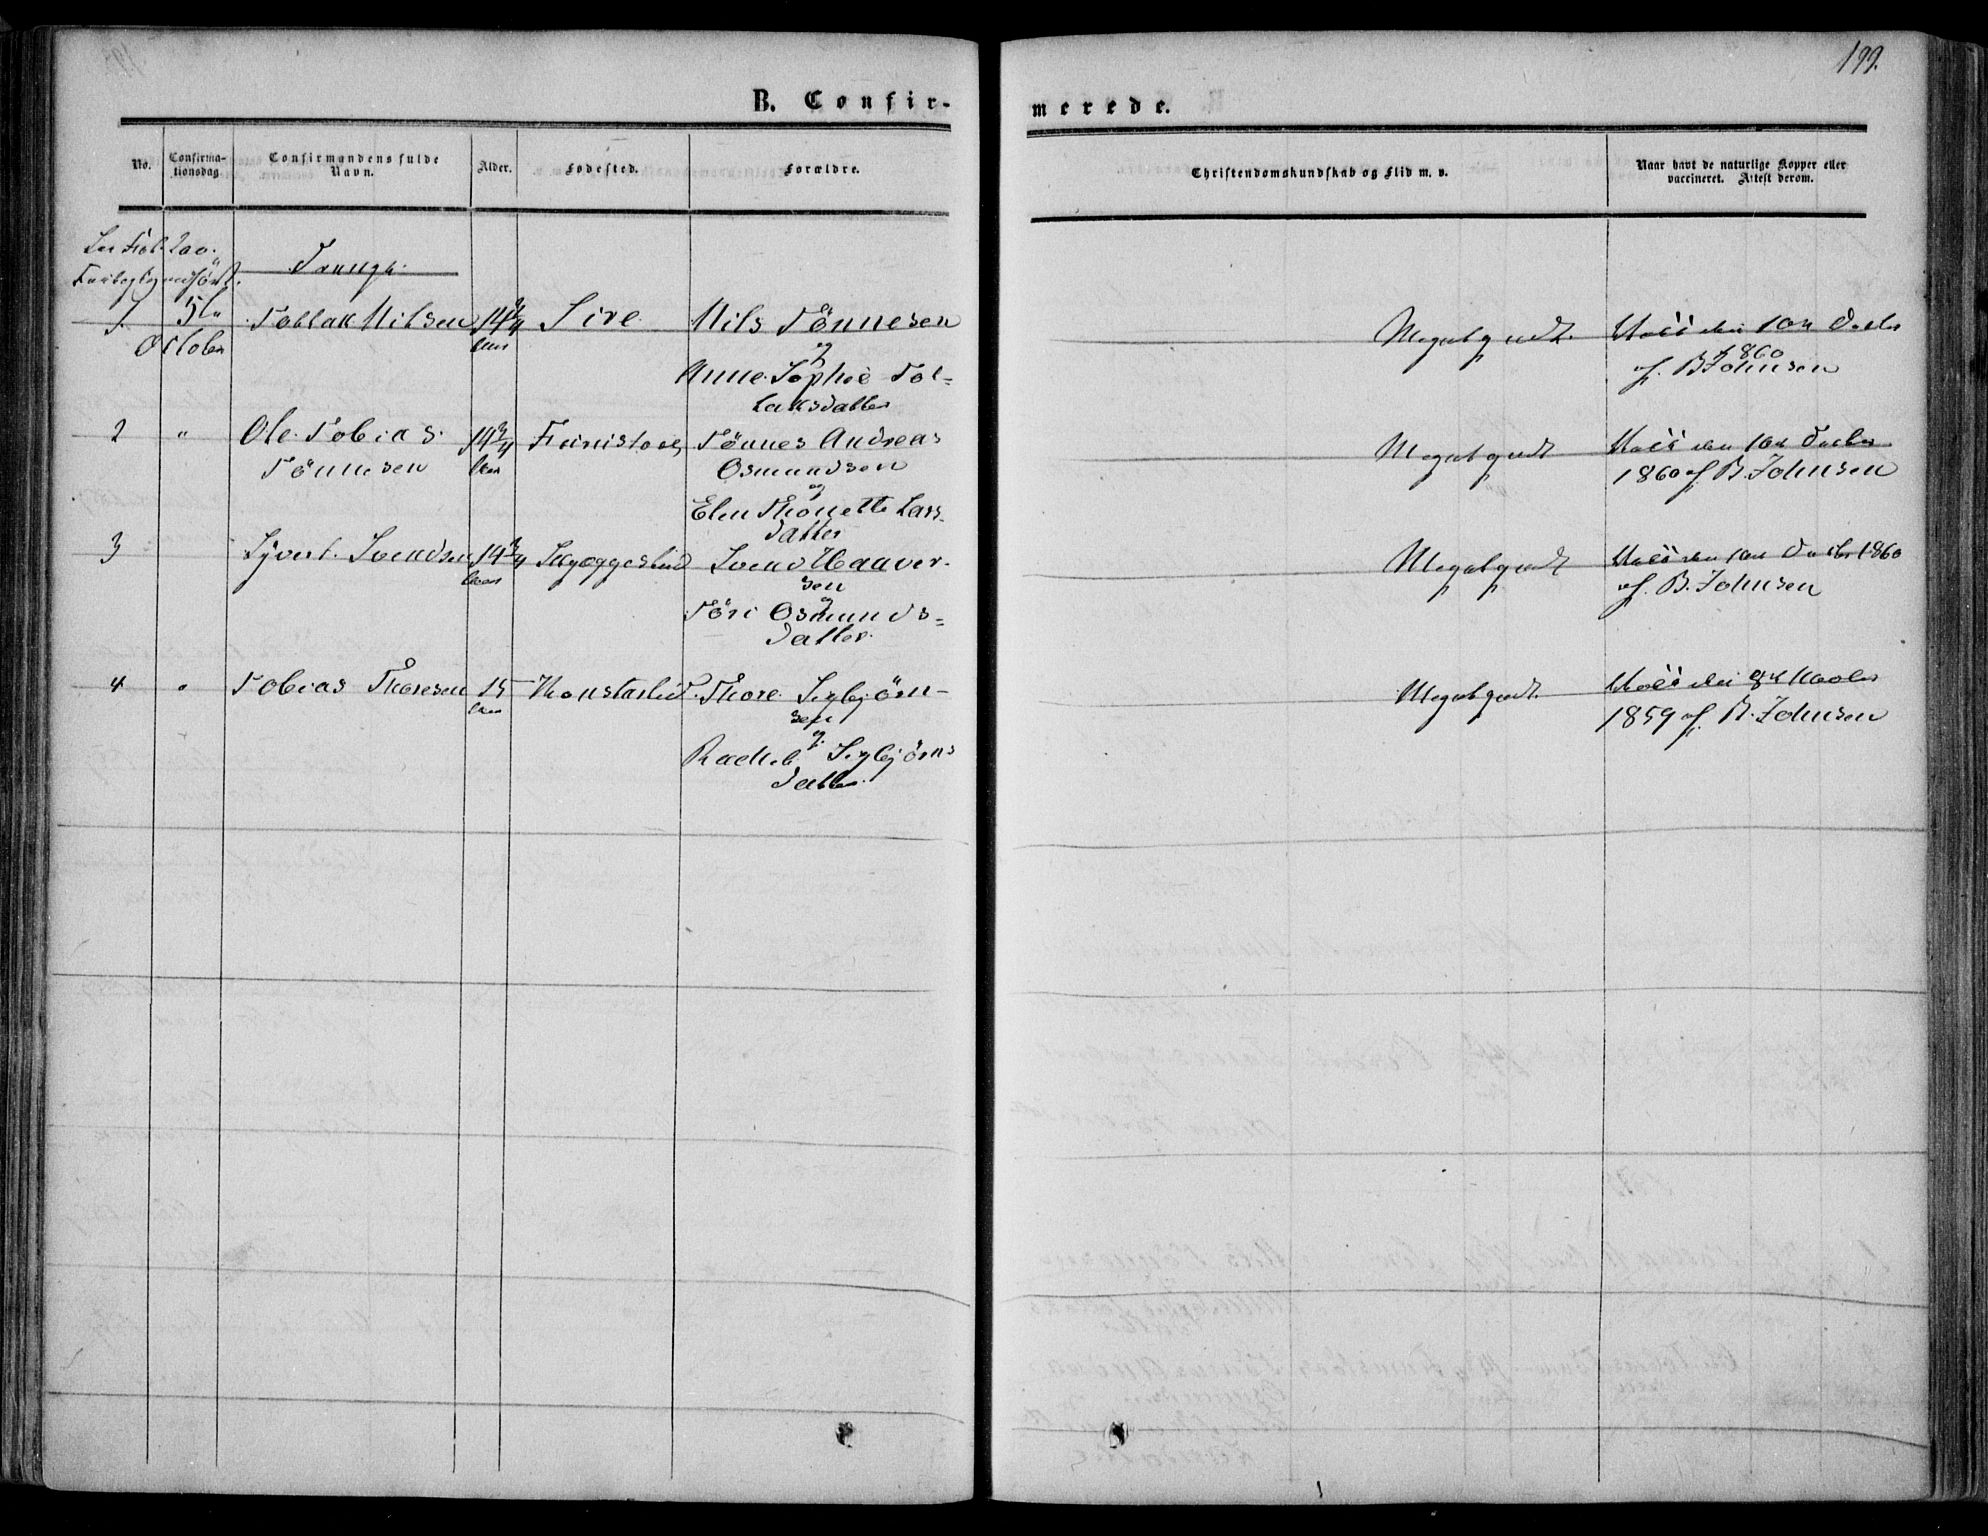 199.
B. Confir-
merede.
No.
Confirma-
tionsdag.
Confirmandens fulde
Navn.
Alder.
Fødested.
Forældre.
Christendomskundskab og Flid m. v.
Naar havt de naturlige Kopper eller
vaccineret. Attest derom.
See Fol. 200.
Drenge.
1.
5te
October
Tollak Nilsen
14 3/4
Sire
Nils Tönnesen
og
Anne Sophie Tol-
laksdatter
Meget godt.
den 10de
1860
af B. Johnsen
2
"
Ole Tobias
Tönnesen
14 3/4
Tönnes Andreas
Osmundsen
og
Elen Thonette Lars-
datter
Meget godt
den 10de
1860 af B. Johnsen
3
Syvert Svendsen
14 3/4
Skyeggestad
Svend Haaver-
sen
og
Töri Osmunds-
datter.
Meget godt
den 10de 1860
af B. Johnsen
4
"
Tobias Thoresen
15
Thore Sigbjörn-
sen
og
Rachel Sigbjörns
datter.
Meget godt
1859 af B. Johnsen